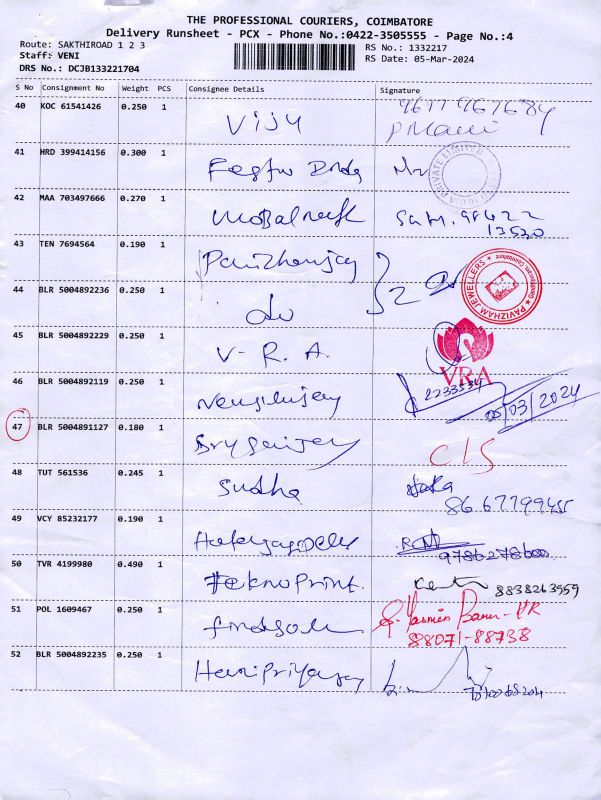 THE PROFESSIONAL COURIERS, COIMBATORE
Delivery Runsheet - PCX - Phone No.:0422-3505555 - Page No.:4
Route: SAKTHIROAD 1 2 3
RS No.: 1332217
Staff: VENI
RS Date: 05-Mar-2024
DRS No.: DCJB133221704
S No Consignment No Weight PCS Consignee Details Signature
40 KOC 61541426 0.250 1
41 HRD 399414156 0.300 1
PRIVATE LIMITED
42 MAA 703497666 0.270 1
98422
13520
43 TEN 7694564 0.190 1
Pavizhamjay
2
PAVIZHAM JEWELLERS
44 BLR 5004892236 0.250 1
do
45 BLR 5004892229 0.250 1
V- R. A.
VRA
46 BLR 5004892119 0.250 1
2233534
05/03/2024
47 BLR 5004891127 0.180 1
C/S
48 TUT 561536 0.245 1
Sudha
49 VCY 85232177 0.190 1
9786278600
50 TVR 4199980 0.490 1
Teknoprint.
8838263959
51 POL 1609467 0.250 1
Yasmin Banu-HR
88071-88738
52 BLR 5004892235 0.250 1
Haripriyajay